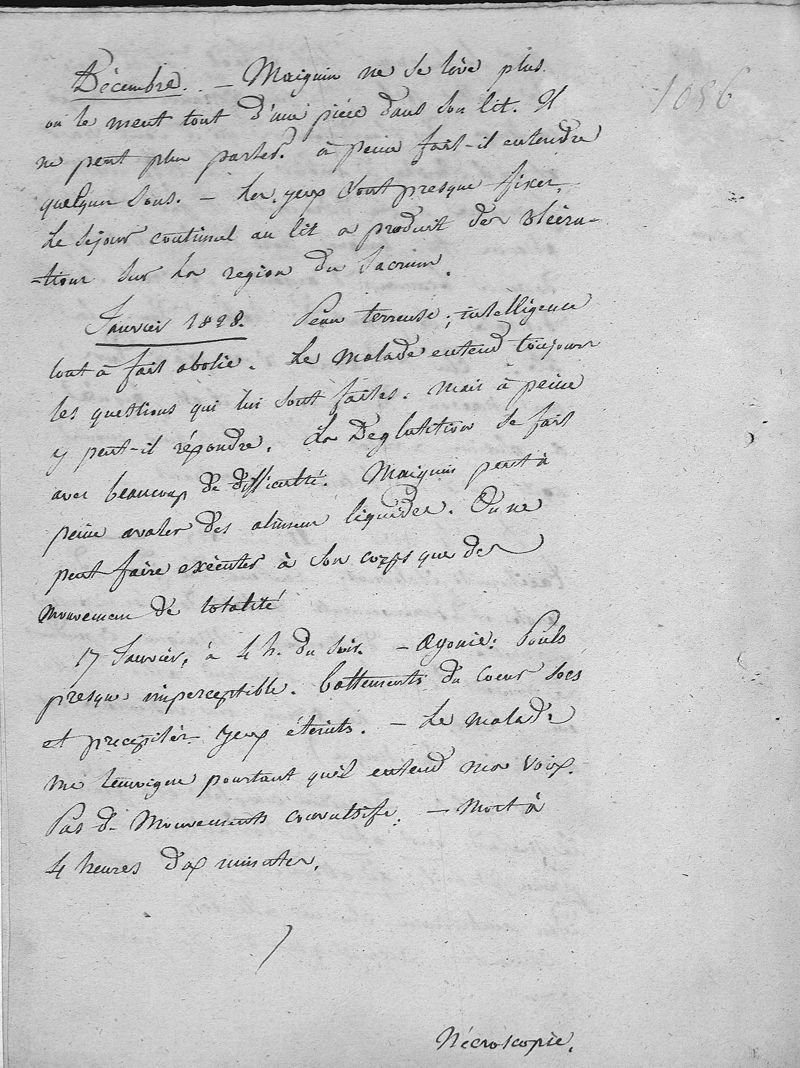 Décembre. – Maiguin ne se lève plus.
on le meut tout d'une pièce dans son lit. Il
ne peut plus parler. à peine fait-il entendre
quelques sons. – Les yeux sont presque fixes.
Le séjour continuel au lit a produit des ulcéra-
-tions sur la region du Sacrum.
1086
Janvier 1828. Peau terreuse; intelligence
tout à fait abolie. Le malade entend toujours
les questions qui lui sont faites. mais à peine
y peut-il répondre. La Déglutition se fait
avec beaucoup de difficulté. Maiguin peut à
peine avaler des alimens liquides. On ne
peut faire exécuter à son corps que des
mouvemens de totalité
17 Janvier, à 4 h. du soir. – agonie: Pouls
presque imperceptible. battements du Coeur secs
et precipités – yeux éteints. – Le malade
me temoigne pourtant qu'il entend ma voix.
Pas de mouvements convulsifs. – Mort à
4 heures dix minutes.
Nécroscopie.